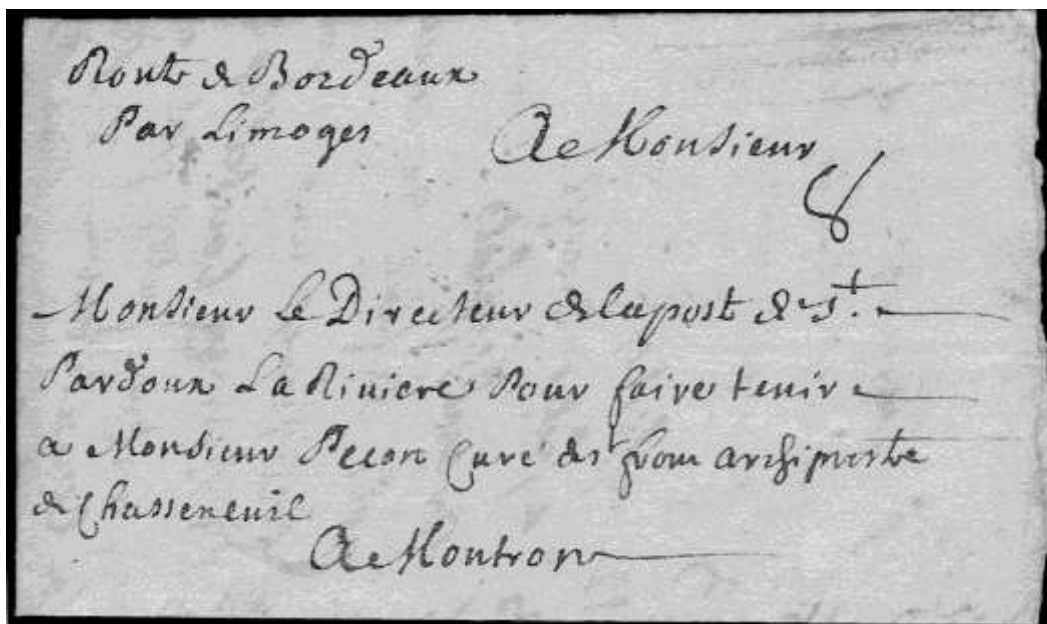 Route de Bordeaux
Par Limoges
A Monsieur
8
Monsieur Le Directeur de la post de St.
Pardoux La Riviere Pour faire tenir
a Monsieur Pecon Curé de St from archiprestre
de Chasseneuil
A Montron